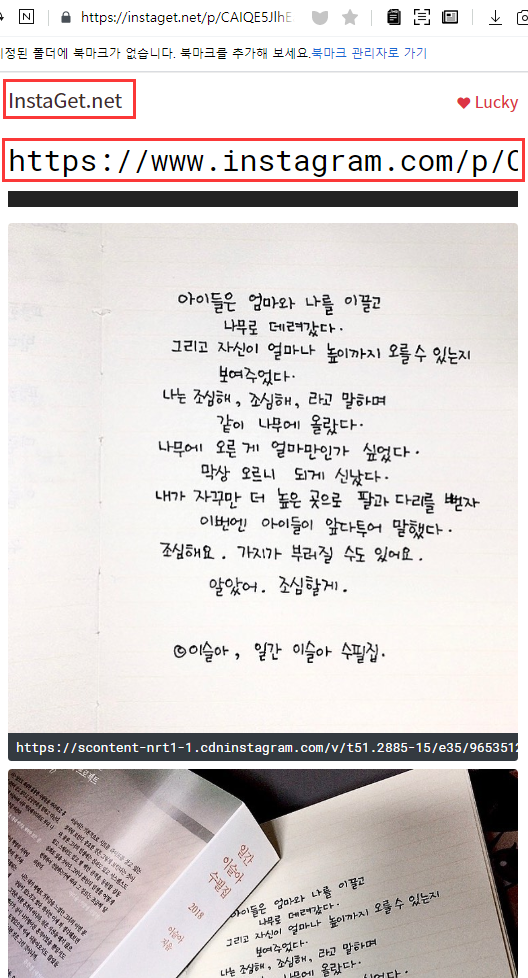 https://instaget.net/p/CAIQE5JlhE
지정된 폴더에 북마크가 없습니다. 북마크를 추가해 보세요.북마크 관리자로 가기
InstaGet.net
Lucky
https://www.instagram.com/p/C
아이들은 엄마와 나를 이끌고
나무로 데려갔다.
그리고 자신이 얼마나 높이까지 오를 수 있는지
보여주었다.
나는 조심해, 조심해, 라고 말하며
같이 나무에 올랐다.
나무에 오른 게 얼마만인가 싶었다.
막상 오르니 되게 신났다.
내가 자꾸만 더 높은 곳으로 팔과 다리를 뻗자
이번엔 아이들이 앞다투어 말했다.
조심해요. 가지가 부러질 수도 있어요.
알았어. 조심할게.
©이슬아, 일간 이슬아 수필집.
https://scontent-nrt1-1.cdninstagram.com/v/t51.2885-15/e35/9653512
일간
이슬아
수필집
2018
이슬아
지음
아이들은 엄마와 나를 이끌고
나무로 데려갔다.
그리고 자신이 얼마나 높이까지 오를 수 있는지
보여주었다.
나는 조심해, 조심해, 라고 말하며
같이 나무에 올랐다.